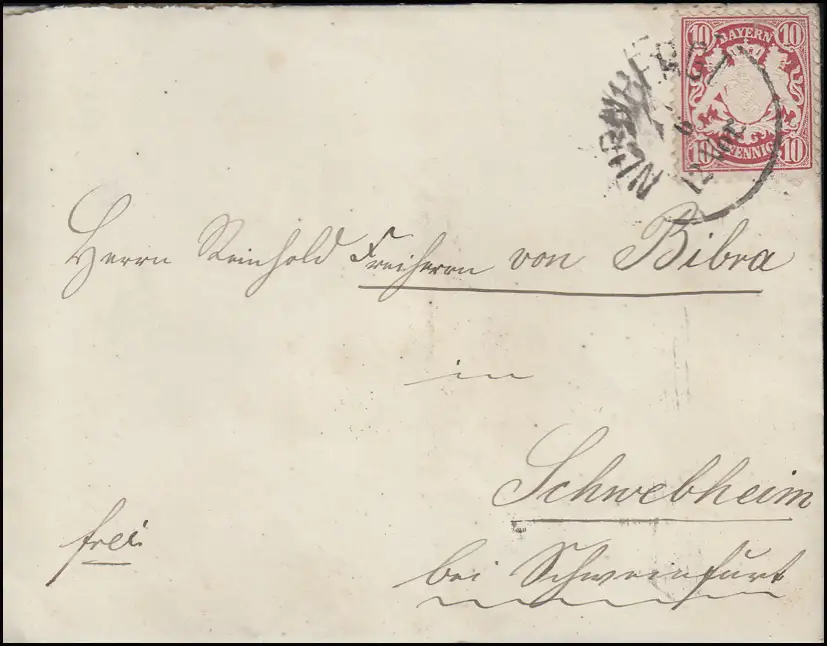 10 BAYERN 10
10 PFENNIG 10
NÜRNBERG I
Herrn Reinhold Freiherrn von Bibra
in
Schwebheim
frei.
bei Schweinfurt